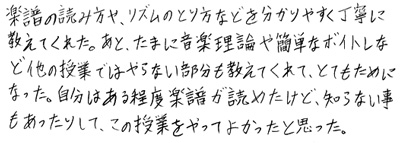 楽譜の読み方や、リズムのとり方などを分かりやすく丁寧に
教えてくれた。あと、たまに音楽理論や簡単なボイトレな
ど他の授業ではやらない部分も教えてくれて、とてもために
なった。自分はある程度楽譜が読めたけど、知らない事
もあったりして、この授業をやってよかったと思った。